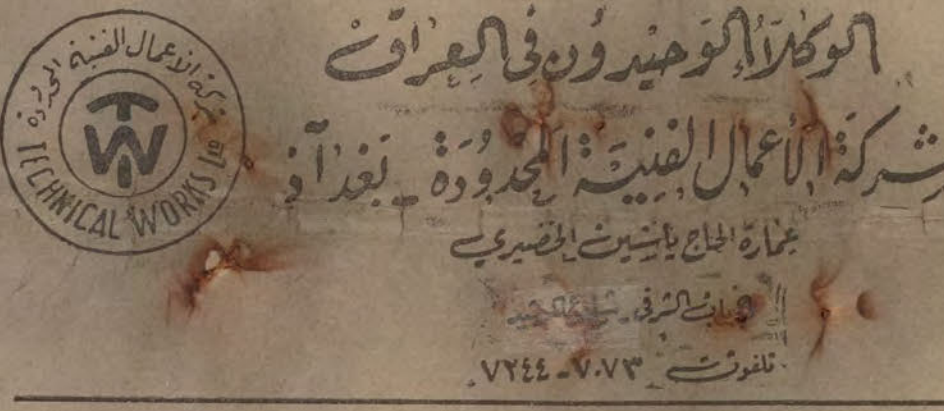 شركة الاعمال الفنية المحدودة
TECHNICAL WORKS Ltd
TW
الوكلاء الوحيدون في العراق
شركة الأعمال الفنية المحدودة - بغداد
عمارة الحاج ياسين الخضيري
الباب الشرقي - شارع
تلفون ٧٠٧٣ - ٧٢٤٤